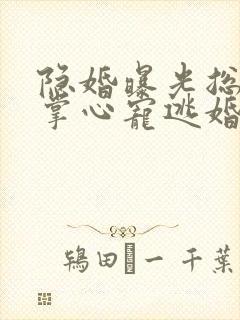 隐婚曝光总
掌心宠逃婚
鸨田一千葉